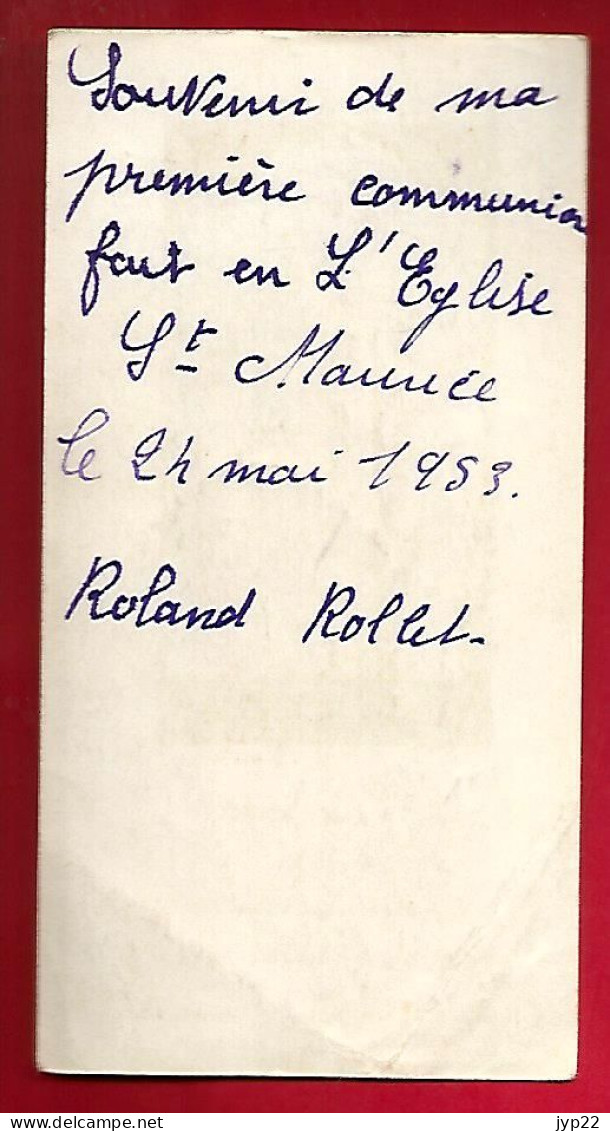 Souvenir de ma
première communion
fait en L'Eglise
St Maurice
le 24 mai 1953.
Roland Rollet-
jyp22